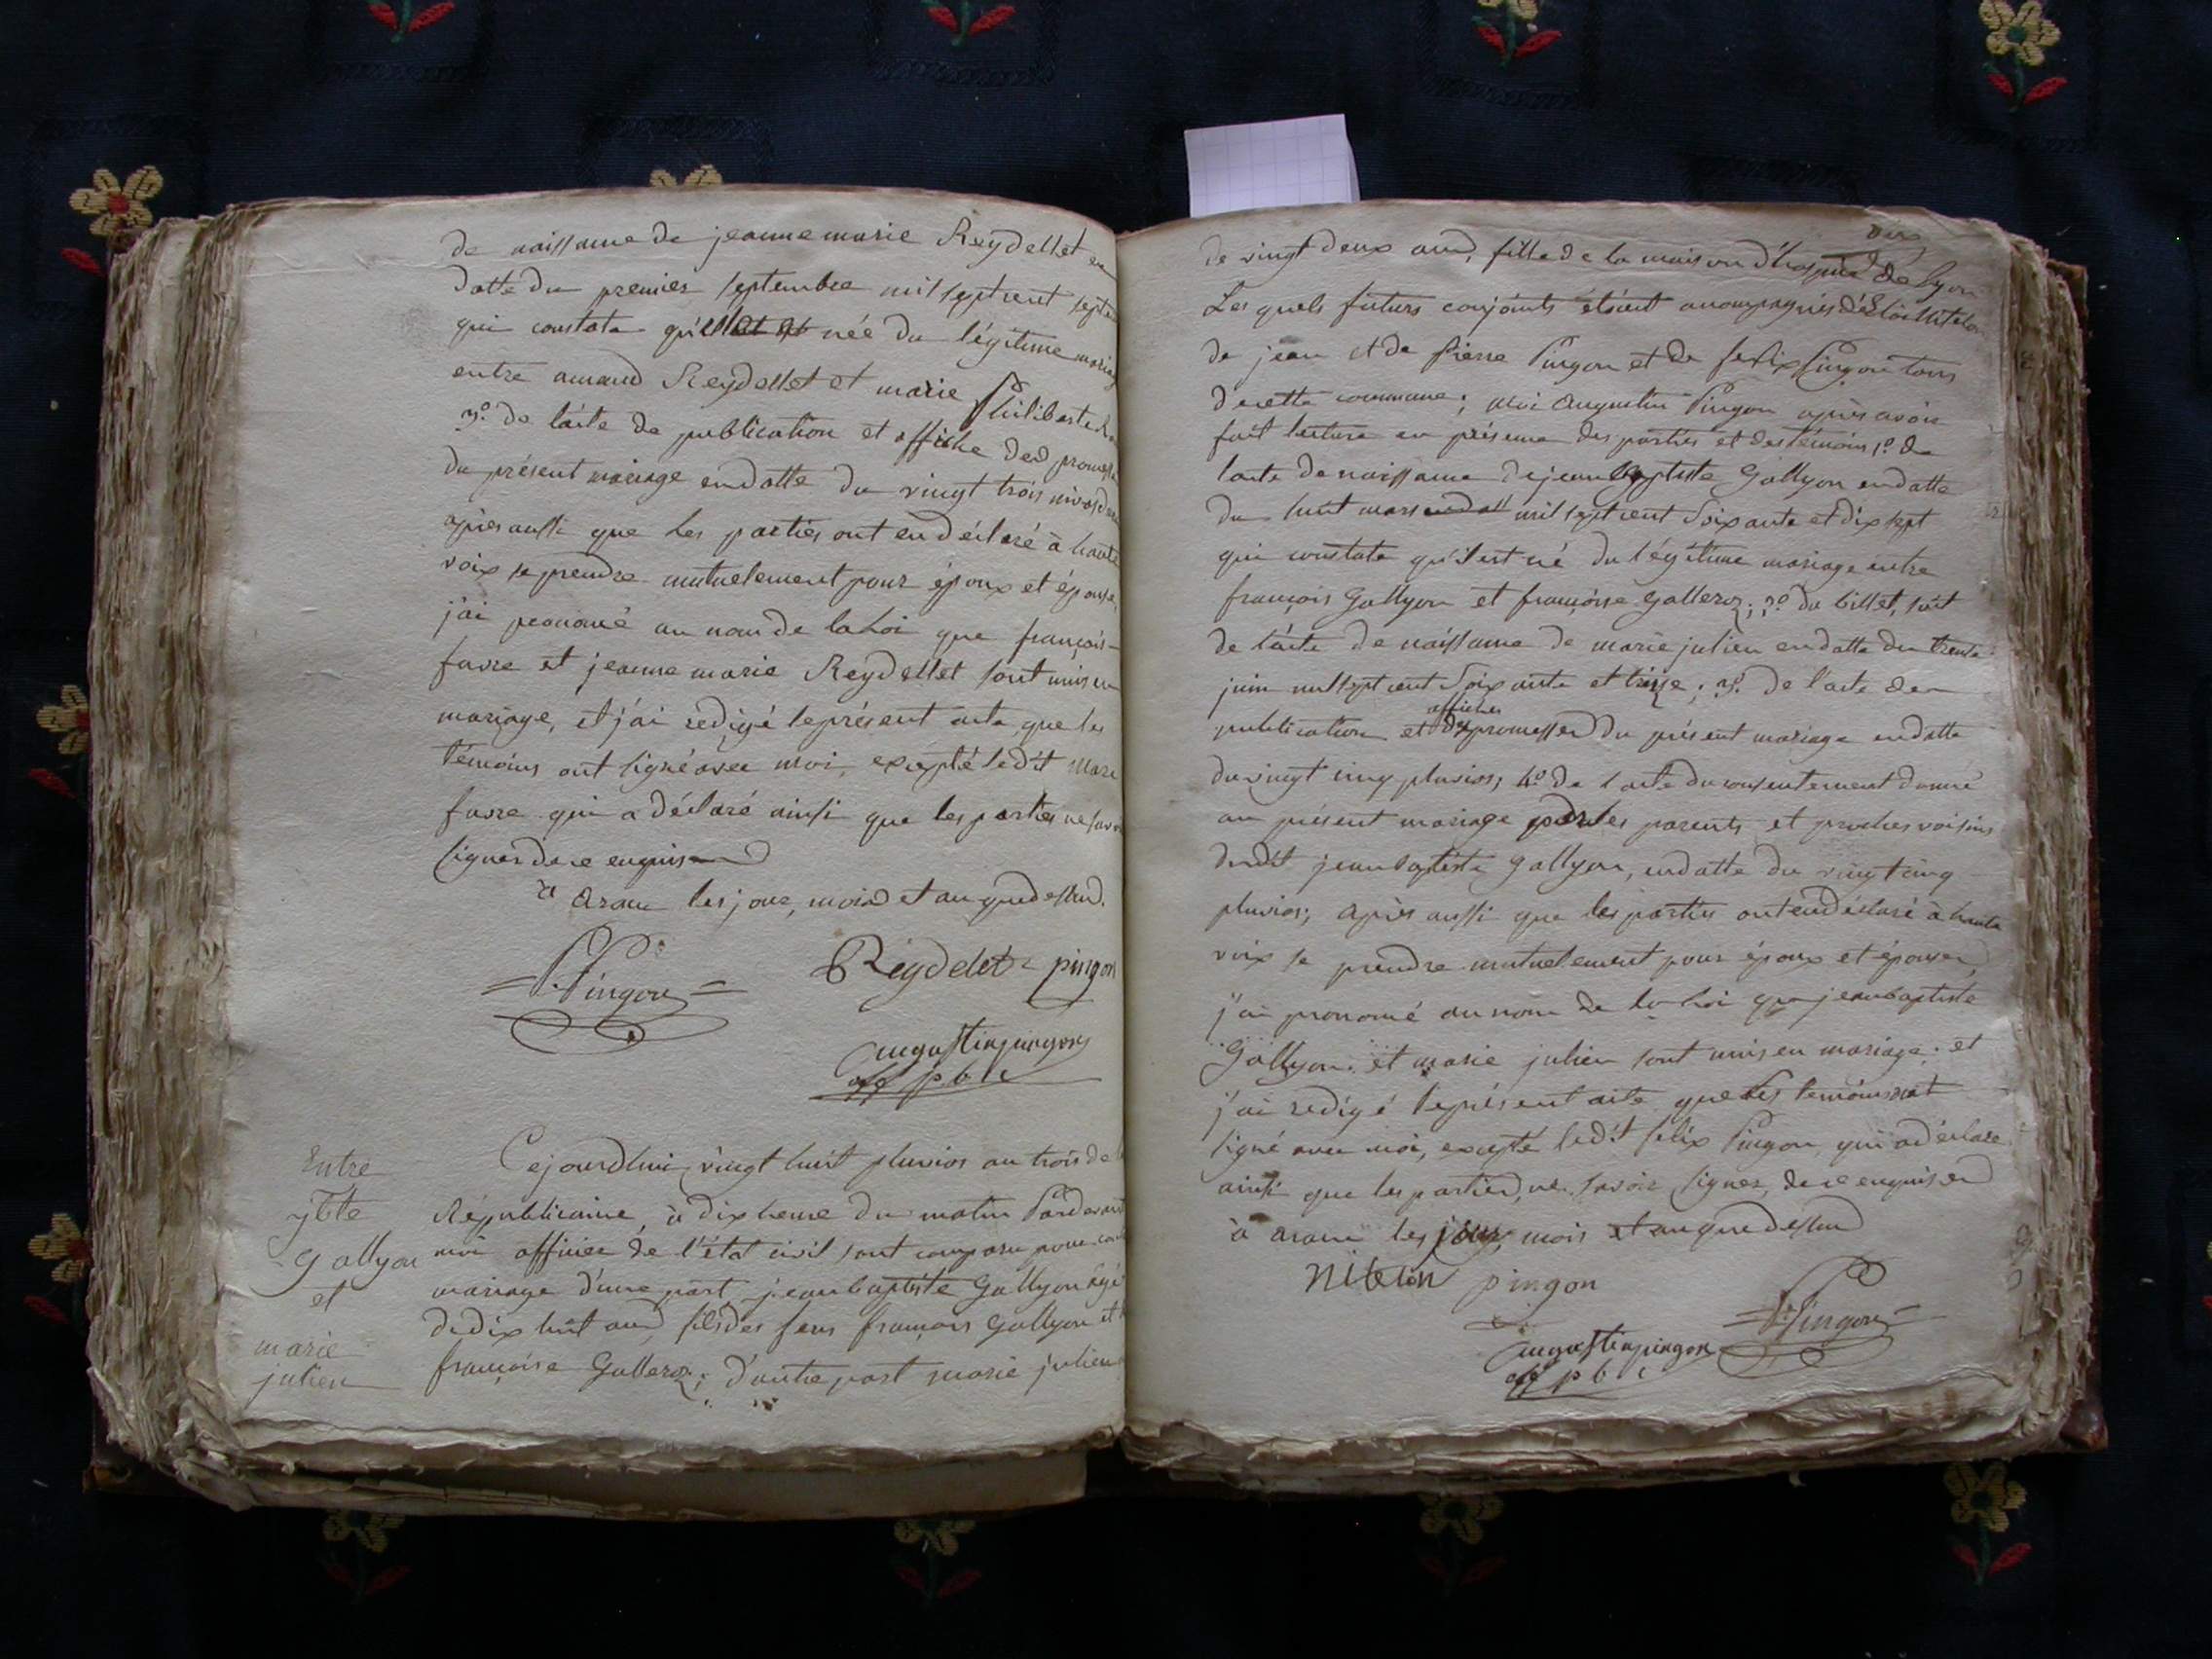 de naissance de jeanne marie Reydellet en
datte du premier septembre mil sept cent septe
qui constate qu'elle née du légitime mariag
entre amand Reydellet et marie philiberte
3º. de l'acte de publication et affiche des promess
du présent mariage en datte du vingt trois nivos
après aussi que les parties ont eu déclaré à haute
voix se prendre mutuelement pour époux et épouse,
j'ai prononcé au nom de la Loi que françois
favre et jeanne marie Reydellet sont unis en
mariage, et j'ai redigé le présent acte, que les
témoins ont signé avec moi, excepté ledit Marc
favre qui a déclaré ainsi que les parties ne savoir
signer de ce enquis
à aranc les jour, mois et an que dessus.
Pingon
Reydelet pingon
augustin pingon
off p b l c
Entre
jbte
Gallyon
et
marie
julien
Cejourdhui vingt huit pluvios an trois de l
Républicaine, à dix heure du matin Pardevant
moi officier de l'état civil sont comparu pour
mariage d'une part jean baptiste Gallyon âgé
de dix huit ans, fils des feus françois Gallyon et
françoise Galleroz; d'autre part marie julien
de vingt deux ans, fille de la maison d'hospice de lyon
Les quels futurs conjoints étoient accompagnés
de jean et de pierre Pingon et de felix Pingon tous
de cette commune; moi augustin Pingon après avoir
fait lecture en présence des parties et des témoins 1º. de
l'acte de naissance de jean baptiste Gallyon en datte
du huit mars mil sept cent soixante et dix sept
qui constate qu'il est né du légitime mariage entre
françois Gallyon et françoise Galleroz; 2º du billet, soit
de l'acte de naissance de marie julien en datte du trente
juin mil sept cent soixante et treize; 3º. de l'acte de
affiches
publication et des promesses du présent mariage en datte
du vingt cinq pluvios; 4º de l'acte du consentement donné
au présent mariage par les parents et proches voisins
dudit jean baptiste Gallyon, en datte du vingt cinq
pluvios; après aussi que les parties ont eu déclaré à haute
voix se prendre mutuelement pour époux et épouse,
j'ai prononcé au nom de la Loi que jean baptiste
Gallyon et marie julien sont unis en mariage; et
j'ai redigé le présent acte que les témoins ont
signé avec moi, excepté ledit felix Pingon qui a déclaré
ainsi que les parties, ne savoir signer, de ce enquis
à aranc les jour, mois et an que dessus
pingon
Pingon
augustin pingon
off p b l c